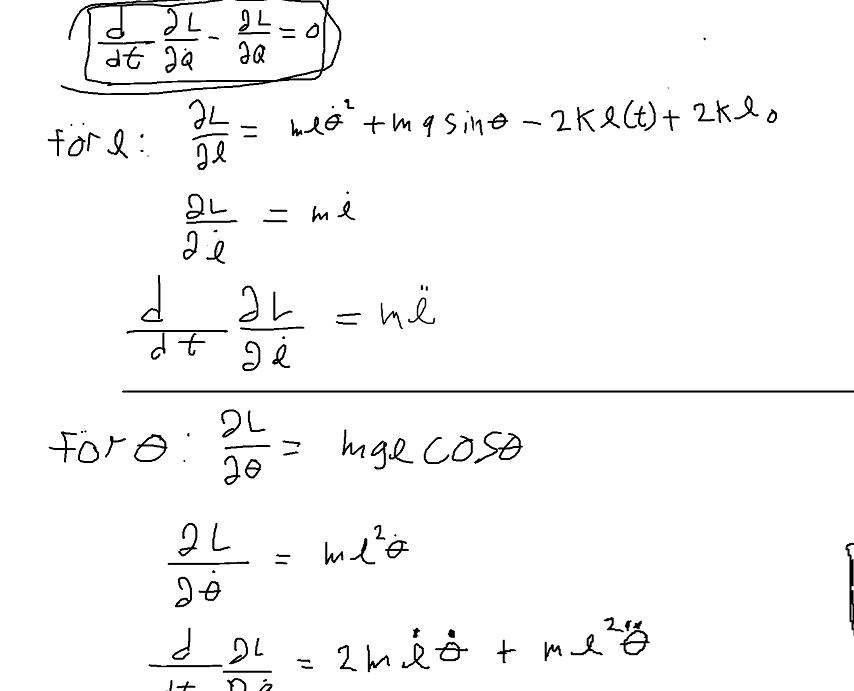 d/dt ∂L/∂Q̇ - ∂L/∂Q = 0
för l: ∂L/∂l = mlθ̇² + mg sinθ - 2Kl(t) + 2Kl₀
∂L/∂l̇ = ml̇
d/dt ∂L/∂l̇ = ml̈
för θ: ∂L/∂θ = mgl cosθ
∂L/∂θ̇ = ml²θ̇
d/dt ∂L/∂θ̇ = 2ml̇θ̇ + ml²θ̈